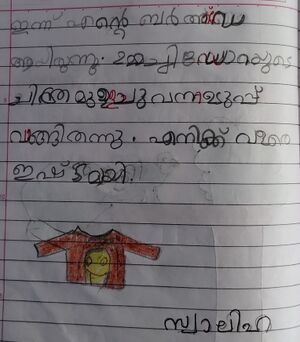 ഇന്ന് എന്റെ ബർത്ത്ഡേ
ആയിരുന്നു. ഉമ്മച്ചി ഡോറയുടെ
ചിത്രമുള്ള ചുവന്ന ഉടുപ്പ്
വാങ്ങി തന്നു. എനിക്ക് വളരെ
ഇഷ്ടമായി.
സ്വാലിഹ